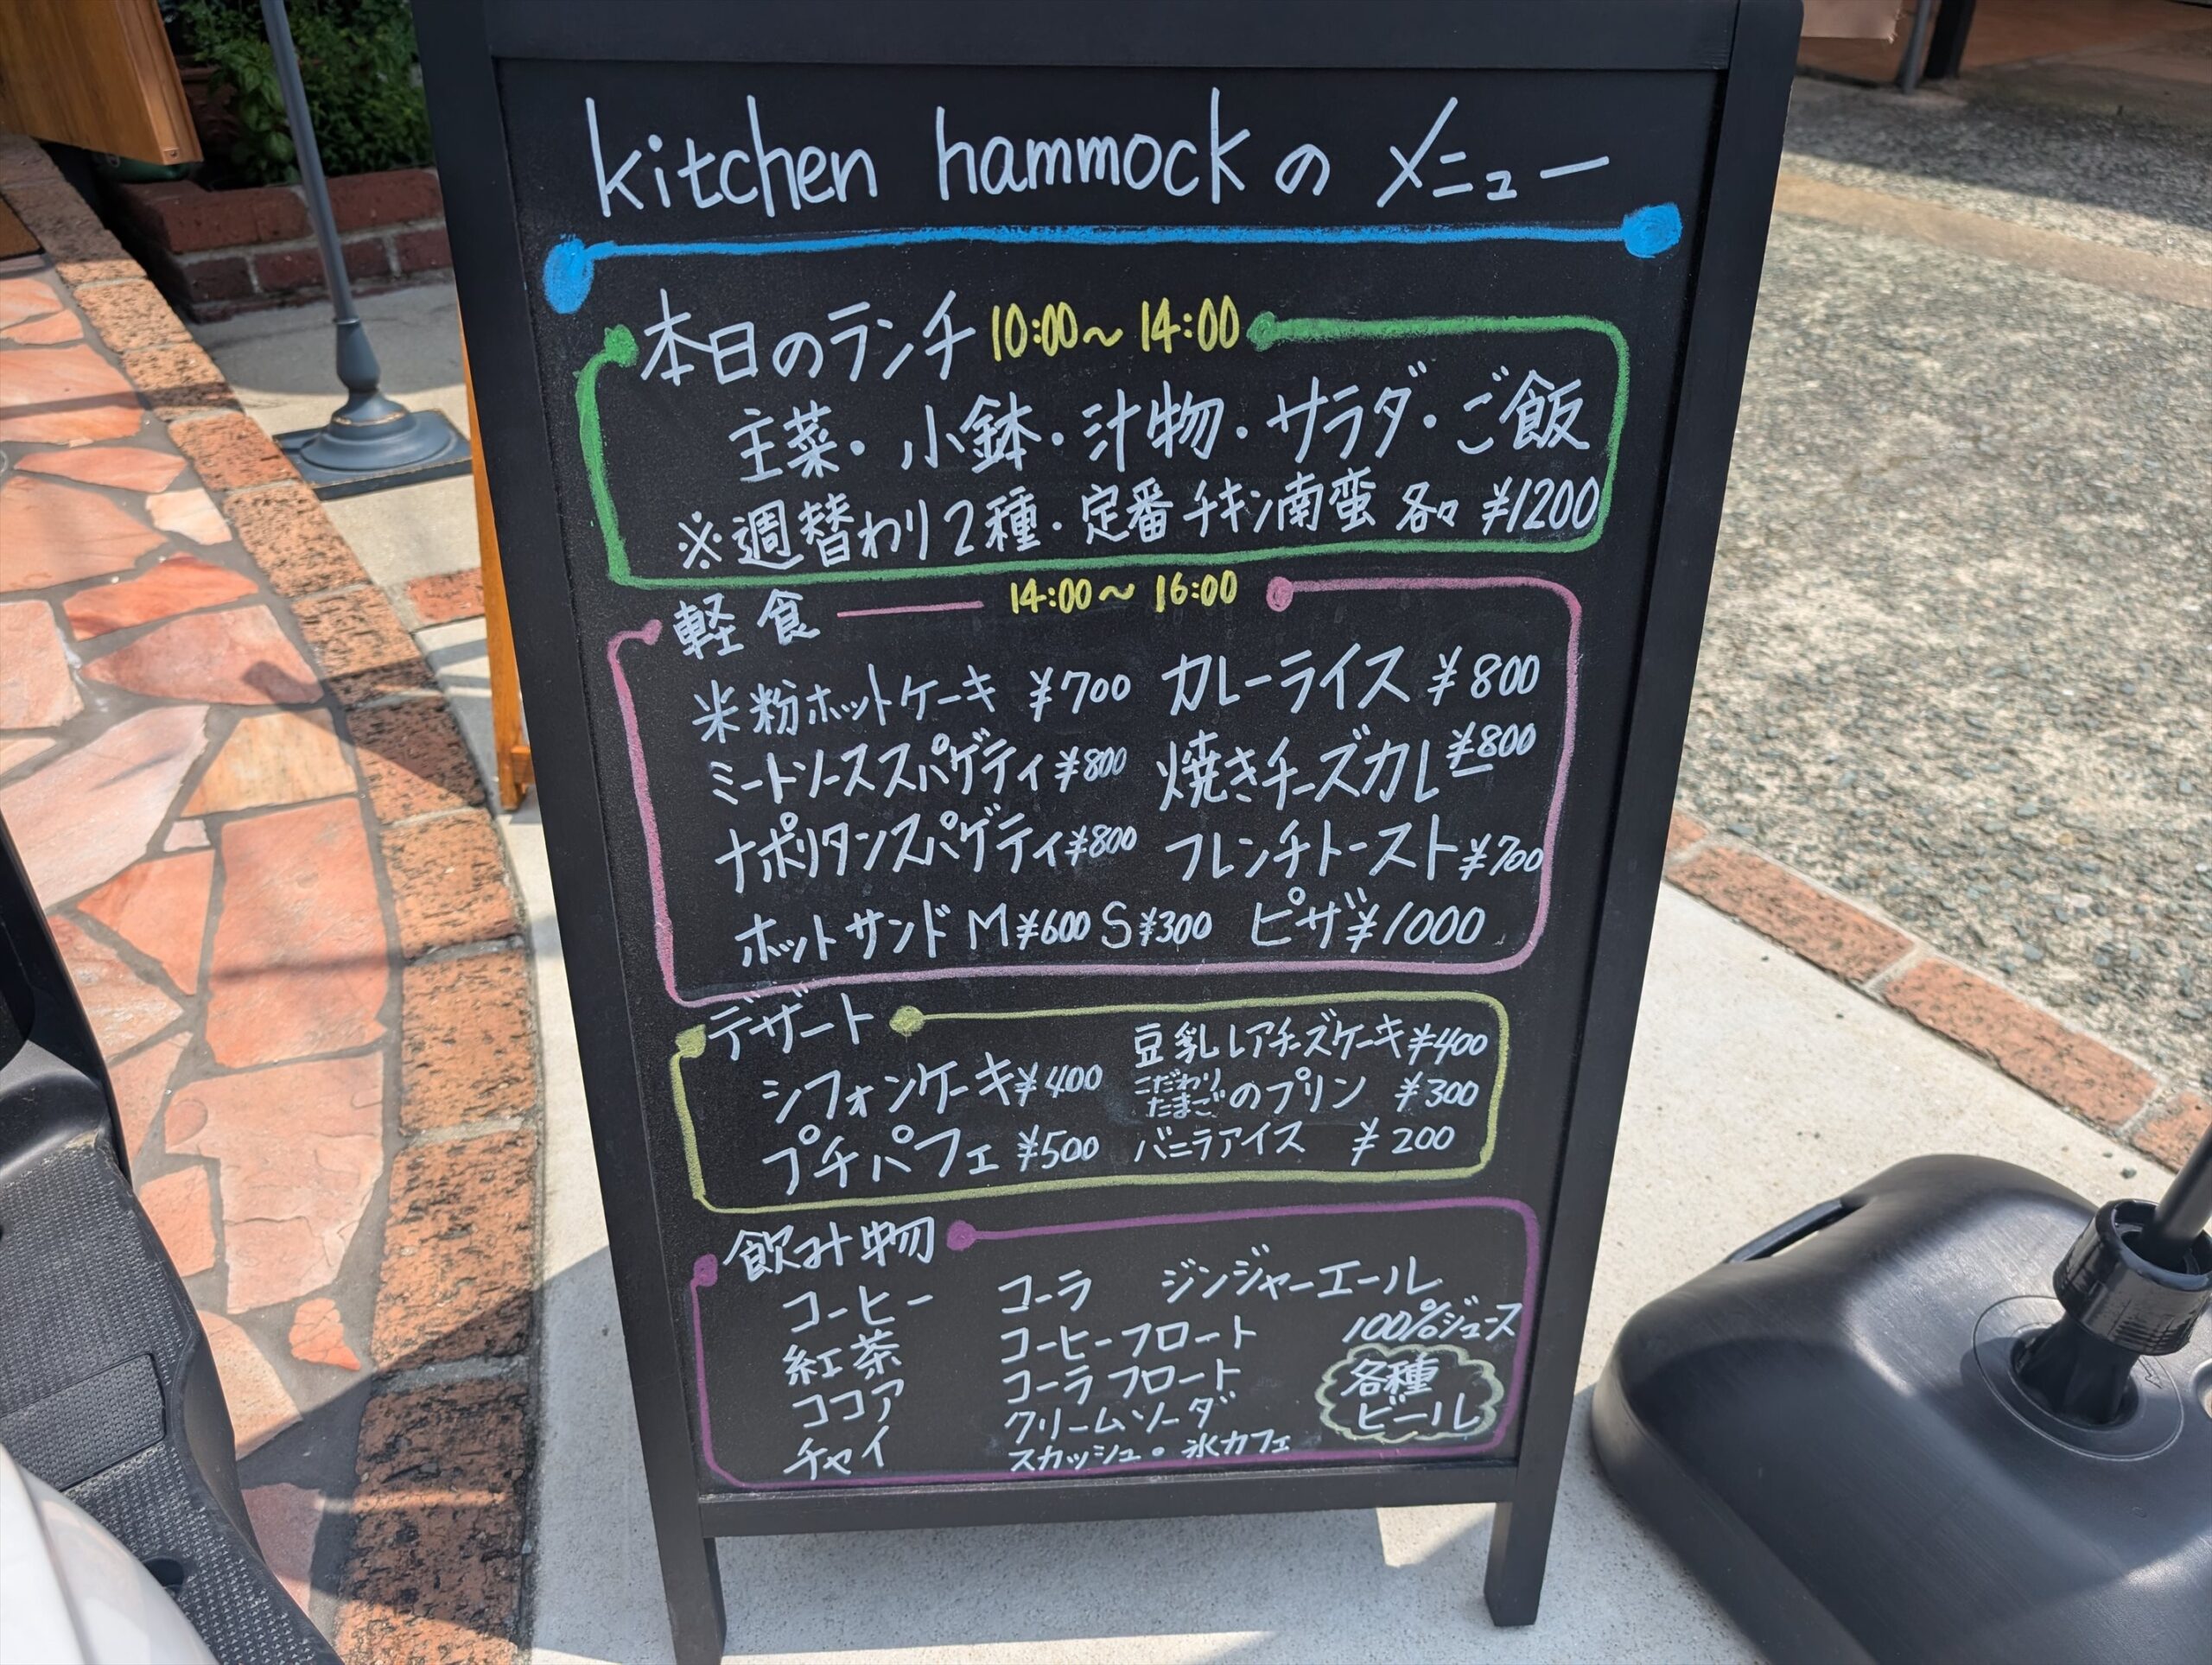 kitchen hammockのメニュー
本日のランチ 10:00～14:00
主菜・小鉢・汁物・サラダ・ご飯
※週替わり2種・定番チキン南蛮 各々 ¥1200
軽食 14:00～16:00
米粉ホットケーキ ¥700 カレーライス ¥800
ミートソーススパゲティ ¥800 焼きチーズカレー ¥800
ナポリタンスパゲティ ¥800 フレンチトースト ¥700
ホットサンド M¥600 S¥300 ピザ ¥1000
デザート
シフォンケーキ ¥400 豆乳レアチーズケーキ ¥400
こだわりたまごのプリン ¥300
プチパフェ ¥500 バニラアイス ¥200
飲み物
コーヒー コーラ ジンジャーエール
紅茶 コーヒーフロート 100%ジュース
ココア コーラフロート 各種
クリームソーダ ビール
チャイ スカッシュ・氷カフェ